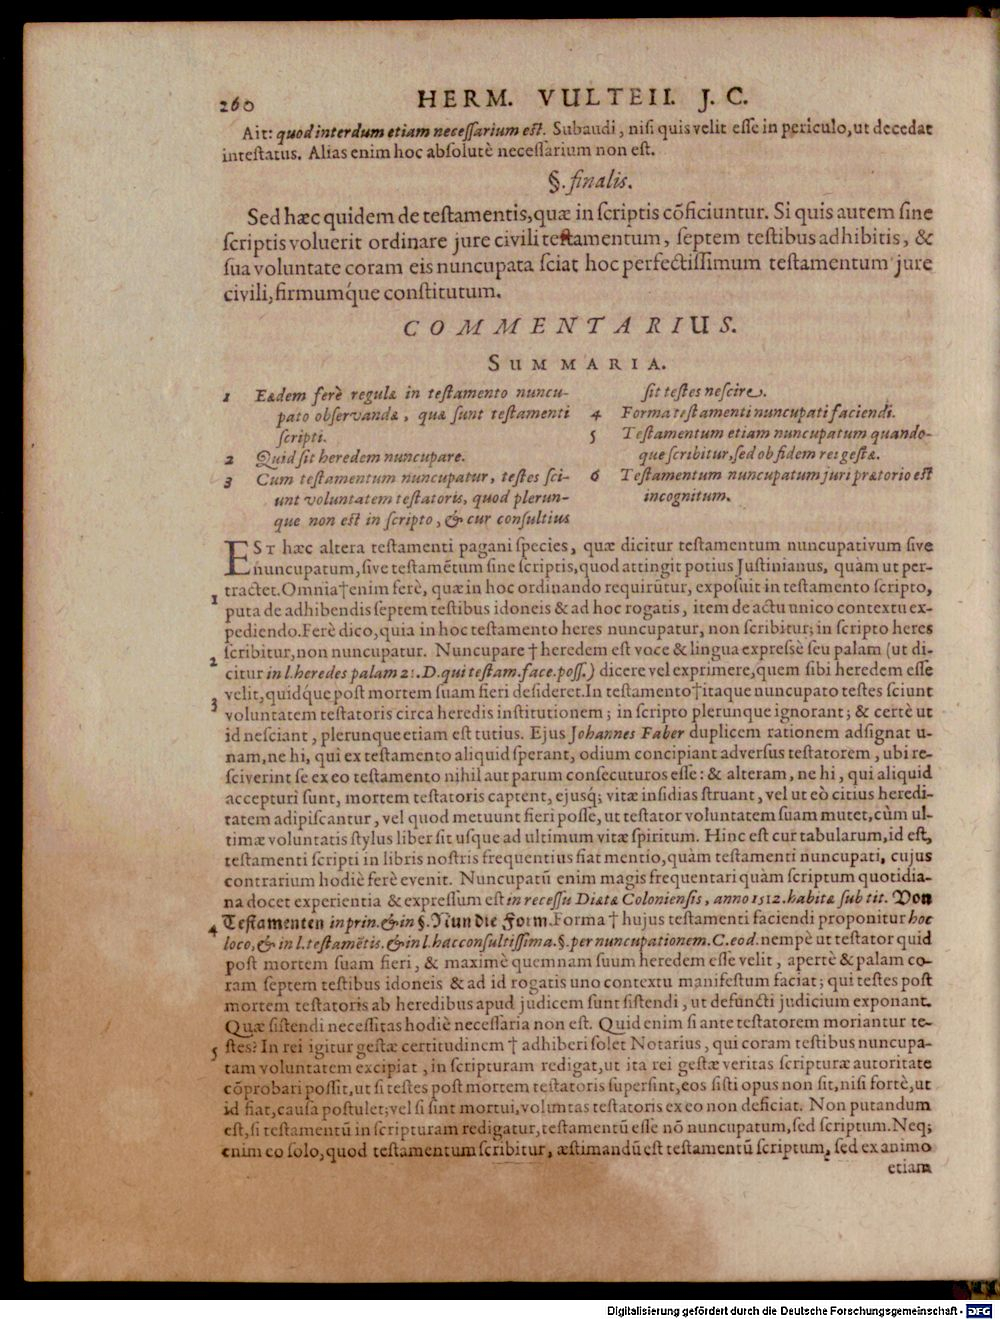 260
HERM. VULTEII. J. C.
Ait: quod interdum etiam necessarium est. Subaudi, nisi quis velit esse in periculo, ut decedat
intestatus. Alias enim hoc absolutè necessarium non est.
§. finalis.
Sed hæc quidem de testamentis, quæ in scriptis cõficiuntur. Si quis autem sine
scriptis voluerit ordinare jure civili testamentum, septem testibus adhibitis, &
sua voluntate coram eis nuncupata sciat hoc perfectissimum testamentum jure
civili, firmumq́ue constitutum.
COMMENTARIUS.
SUMMARIA.
1 Eædem ferè regulæ in testamento nuncu-
pato observandæ, quæ sunt testamenti
scripti.
2 Quid sit heredem nuncupare.
3 Cum testamentum nuncupatur, testes sci-
unt voluntatem testatoris, quod plerun-
que non est in scripto, & cur consultius
sit testes nescire.
4 Forma testamenti nuncupati faciendi.
5 Testamentum etiam nuncupatum quando-
que scribitur, sed ob fidem rei gestæ.
6 Testamentum nuncupatum juri prætorio est
incognitum.
EST hæc altera testamenti pagani species, quæ dicitur testamentum nuncupativum sive
nuncupatum, sive testamẽtum sine scriptis, quod attingit potius Justinianus, quàm ut per-
tractet. Omnia † enim ferè, quæ in hoc ordinando requirũtur, exposuit in testamento scripto,
1 puta de adhibendis septem testibus idoneis & ad hoc rogatis, item de actu unico contextu ex-
pediendo. Ferè dico, quia in hoc testamento heres nuncupatur, non scribitur; in scripto heres
scribitur, non nuncupatur. Nuncupare † heredem est voce & lingua expressè seu palam (ut di-
2 citur in l. heredes palam 21. D. qui testam. face. poss.) dicere vel exprimere, quem sibi heredem esse
velit, quidq́ue post mortem suam fieri desideret. In testamento † itaque nuncupato testes sciunt
3 voluntatem testatoris circa heredis institutionem; in scripto plerunque ignorant; & certè ut
id nesciant, plerunque etiam est tutius. Ejus Johannes Faber duplicem rationem adsignat u-
nam, ne hi, qui ex testamento aliquid sperant, odium concipiant adversus testatorem, ubi re-
sciverint se ex eo testamento nihil aut parum consecuturos esse: & alteram, ne hi, qui aliquid
accepturi sunt, mortem testatoris captent, ejusq; vitæ insidias struant, vel ut eò citius heredi-
tatem adipiscantur, vel quod metuunt fieri posse, ut testator voluntatem suam mutet, cùm ul-
timæ voluntatis stylus liber sit usque ad ultimum vitæ spiritum. Hinc est cur tabularum, id est,
testamenti scripti in libris nostris frequentius fiat mentio, quàm testamenti nuncupati, cujus
contrarium hodiè ferè evenit. Nuncupatũ enim magis frequentari quàm scriptum quotidia-
na docet experientia & expressum est in recessu Diætæ Coloniensis, anno 1512. habitæ sub tit. Von
Testamenten in prin. & in §. Nun die Form. Forma † hujus testamenti faciendi proponitur hoc
4 loco, & in l. testamẽtis. & in l. hac consultissima. §. per nuncupationem. C. eod. nempè ut testator quid
post mortem suam fieri, & maximè quemnam suum heredem esse velit, apertè & palam co-
ram septem testibus idoneis & ad id rogatis uno contextu manifestum faciat; qui testes post
mortem testatoris ab heredibus apud judicem sunt sistendi, ut defuncti judicium exponant.
Quæ sistendi necessitas hodiè necessaria non est. Quid enim si ante testatorem moriantur te-
stes? In rei igitur gestæ certitudinem † adhiberi solet Notarius, qui coram testibus nuncupa-
5 tam voluntatem excipiat, in scripturam redigat, ut ita rei gestæ veritas scripturæ autoritate
cõprobari possit, ut si testes post mortem testatoris supersint, eos sisti opus non sit, nisi fortè, ut
id fiat, causa postulet; vel si sint mortui, voluntas testatoris ex eo non deficiat. Non putandum
est, si testamentũ in scripturam redigatur, testamentũ esse nõ nuncupatum, sed scriptum. Neq;
enim eo solo, quod testamentum scribitur, æstimandũ est testamentũ scriptum, sed ex animo
etiam
Digitalisierung gefördert durch die Deutsche Forschungsgemeinschaft - DFG